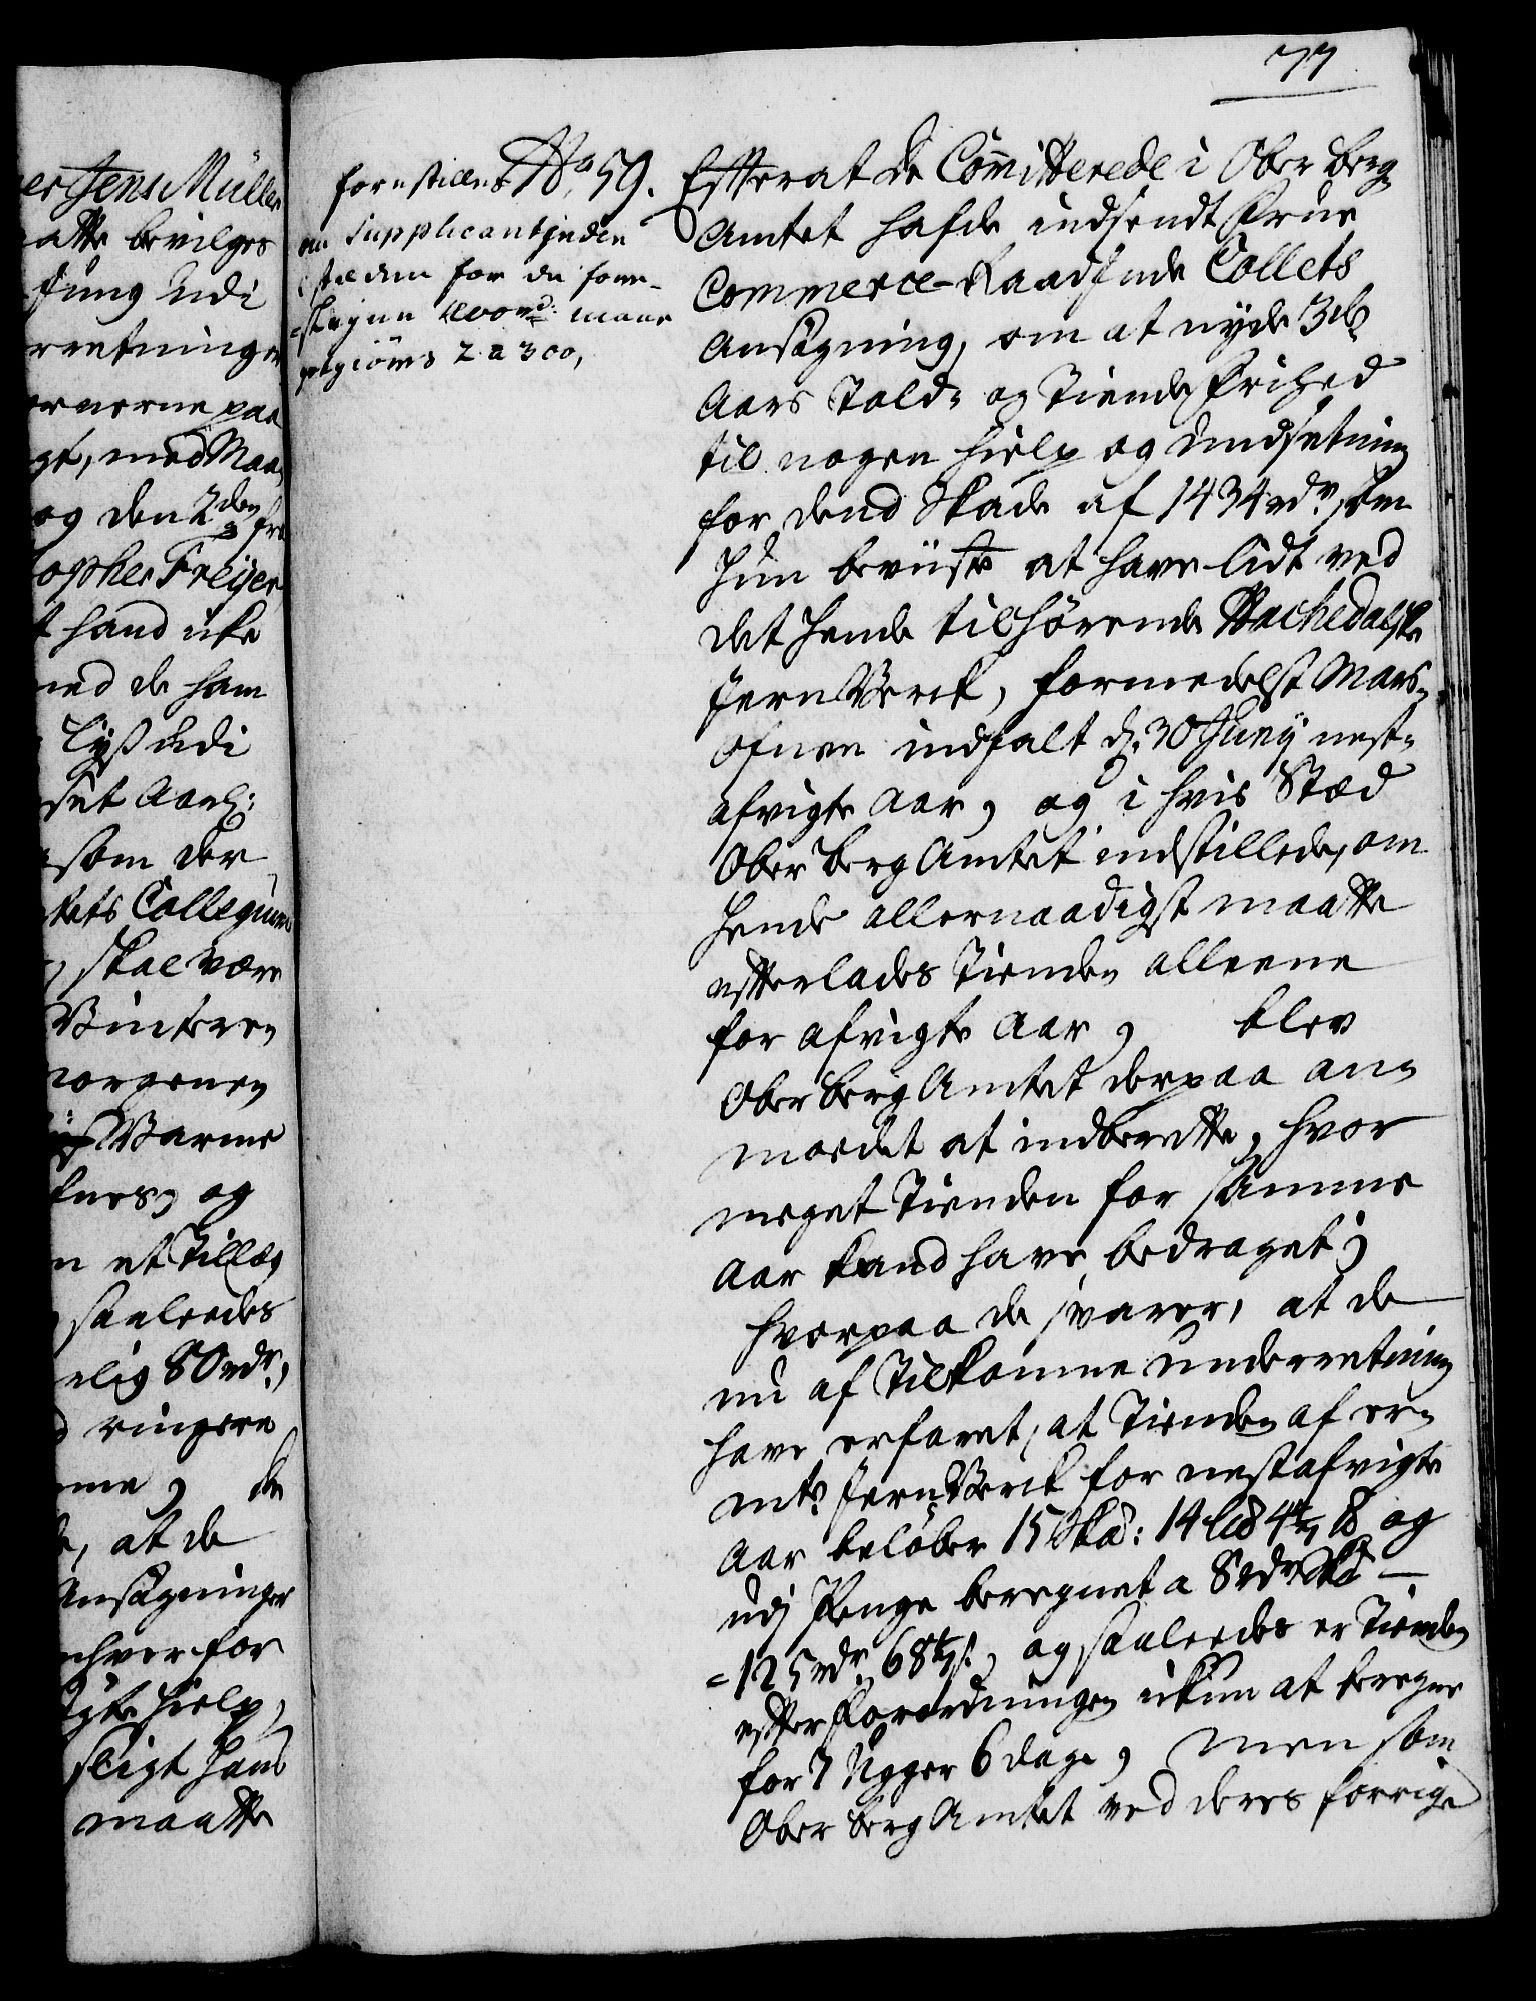 77
er Jens Müller
atte bevilges
fung udi
rretninger
ernerne paa
gt, med Maa
og den 2den fra
opher Freÿer
t hand icke
med de ham
Lyß udi
set Aarl:
som der
tets Collegium
, skal være
Vinteren
morgenen
Varme
fnes, og
n et Tillæg
saaledes
rlig 80 rdr,
d ringere
me, de
, at de
Ansøgninger
hver for
gte hielp,
sligt hans
maatte
forestilles No 59.
om Supplicantinden
i stæden for de fore-
=slagne 1200 rd: maae
godgiöres 2 a 300,
Efterat de Committerede i Ober Berg
Amtet hafde indsendt Frue
Commerce-Raadinde Collets
Ansøgning, om at nyde 3de
Aars Told- og Tiende Frihed
til nogen hielp og Undsetning
for dend Skade af 1434 rdr, som
hun beviiste at have lidt ved
det hende tilhørende Hachedalske
Jern Verck, formedelst Mars-
Ofnen indfalt d. 30 Junÿ nest-
afvigte Aar, og i hvis Sted
Ober Berg Amtet indstillede, om
hende allernaadigst maatte
efterlades Tienden alleene
for afvigte Aar, blev
Ober Berg Amtet derpaa an-
moedet at indberette, hvor
meget Tienden for samme
Aar kand have bedraget;
hvorpaa de svarer, at de
nu af Tilkomne underretning
have erfaret, at Tienden af er-
mte Jern Verck for nestafvigte
Aar beløber 15 Skd: 14 Ld 4 4/7 ℔ og
udj Penge beregnet a 8 rdr Skd —
=125 rdr 68 4/7 s, og saaledes er Tienden
efter Forordningen ickun at beregne
for 7 Uger 6 dage, men som
Ober Berg Amtet ved deres forrige